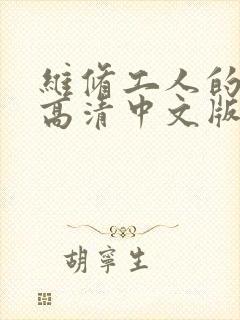 維脩工人的
高清中文版
胡寧生